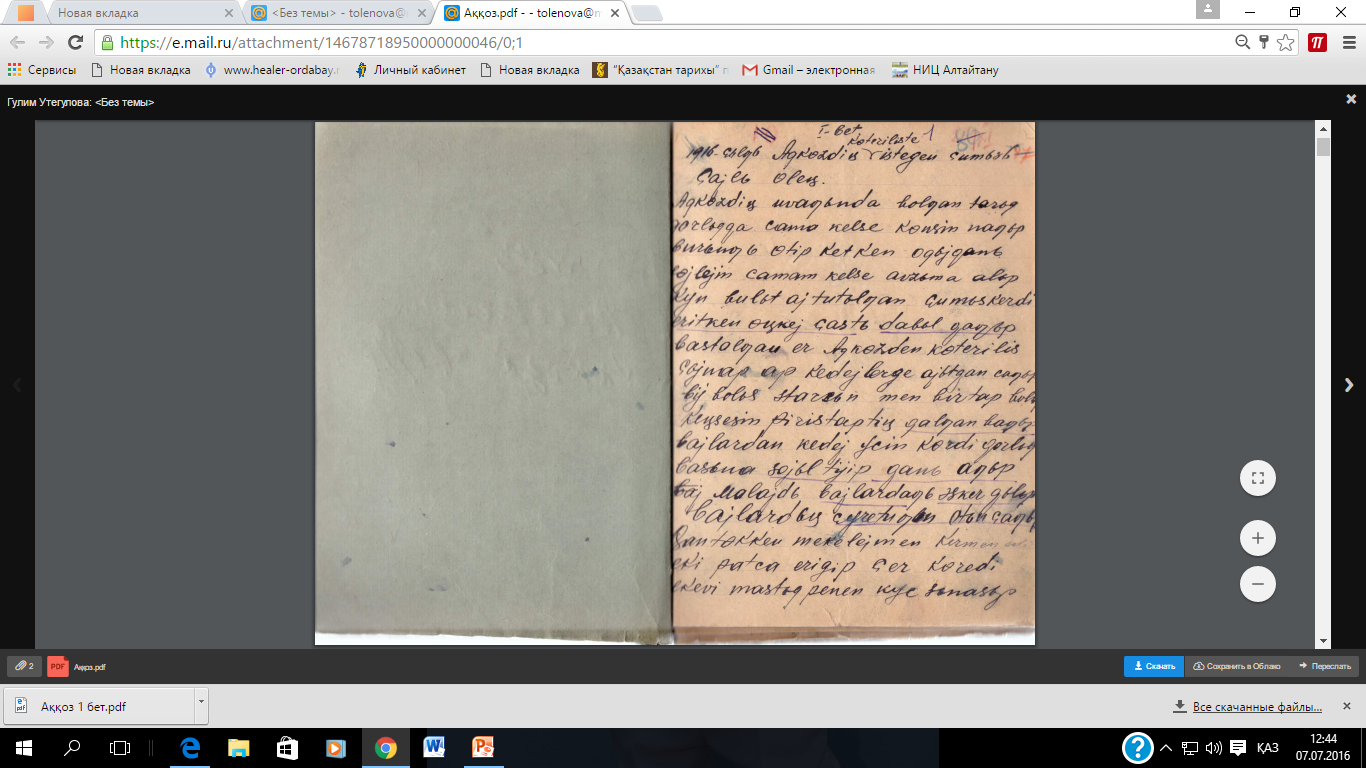 Новая вкладка
<Без темы> - tolenova@
Аққоз.pdf - - tolenova@
https://e.mail.ru/attachment/14678718950000000046/0;1
Сервисы Новая вкладка www.healer-ordabay. Личный кабинет Новая вкладка "Қазақстан тарихы" Gmail – электронная НИЦ Алтайтану
Гулим Утегулова: <Без темы>
I-bet
koteriliste 1
1916-çьlqь Aqkozdiң istegen çumьsь
Çajlь oleң.
Aqkozdiң uvaqьnda bolqan tarьq
qorlьqqa çama kelse koңiin
burьnqь otip ketken oqьjqanь
sojlejin çamam kelse avzьma alьp
kyn bulьt aj tutolqan çumьskerdi
eritken oңkej çastь dabьl qaqьp
bastalqan er Aqkozden koterilis
çьjnap ap kedejlerge ajьtqan
bij bolьs starcьn men birtap
keңsesin piristaptiң qalqan
bajlardan kedej ycin kordi qorlьq
basьna sojьl tijip qanь aqьp
baj malajdь bajlardaqь
bajlardьң
Qan tokken merelejmen
eki patca erigip çer koredi
ekevi mastьq penen kyc sьnasьp
2
PDF Аққоз.pdf
Скачать
Сохранить в Облако
Переслать
Аққоз 1 бет.pdf
Все скачанные файлы...
ҚАЗ
12:44
07.07.2016